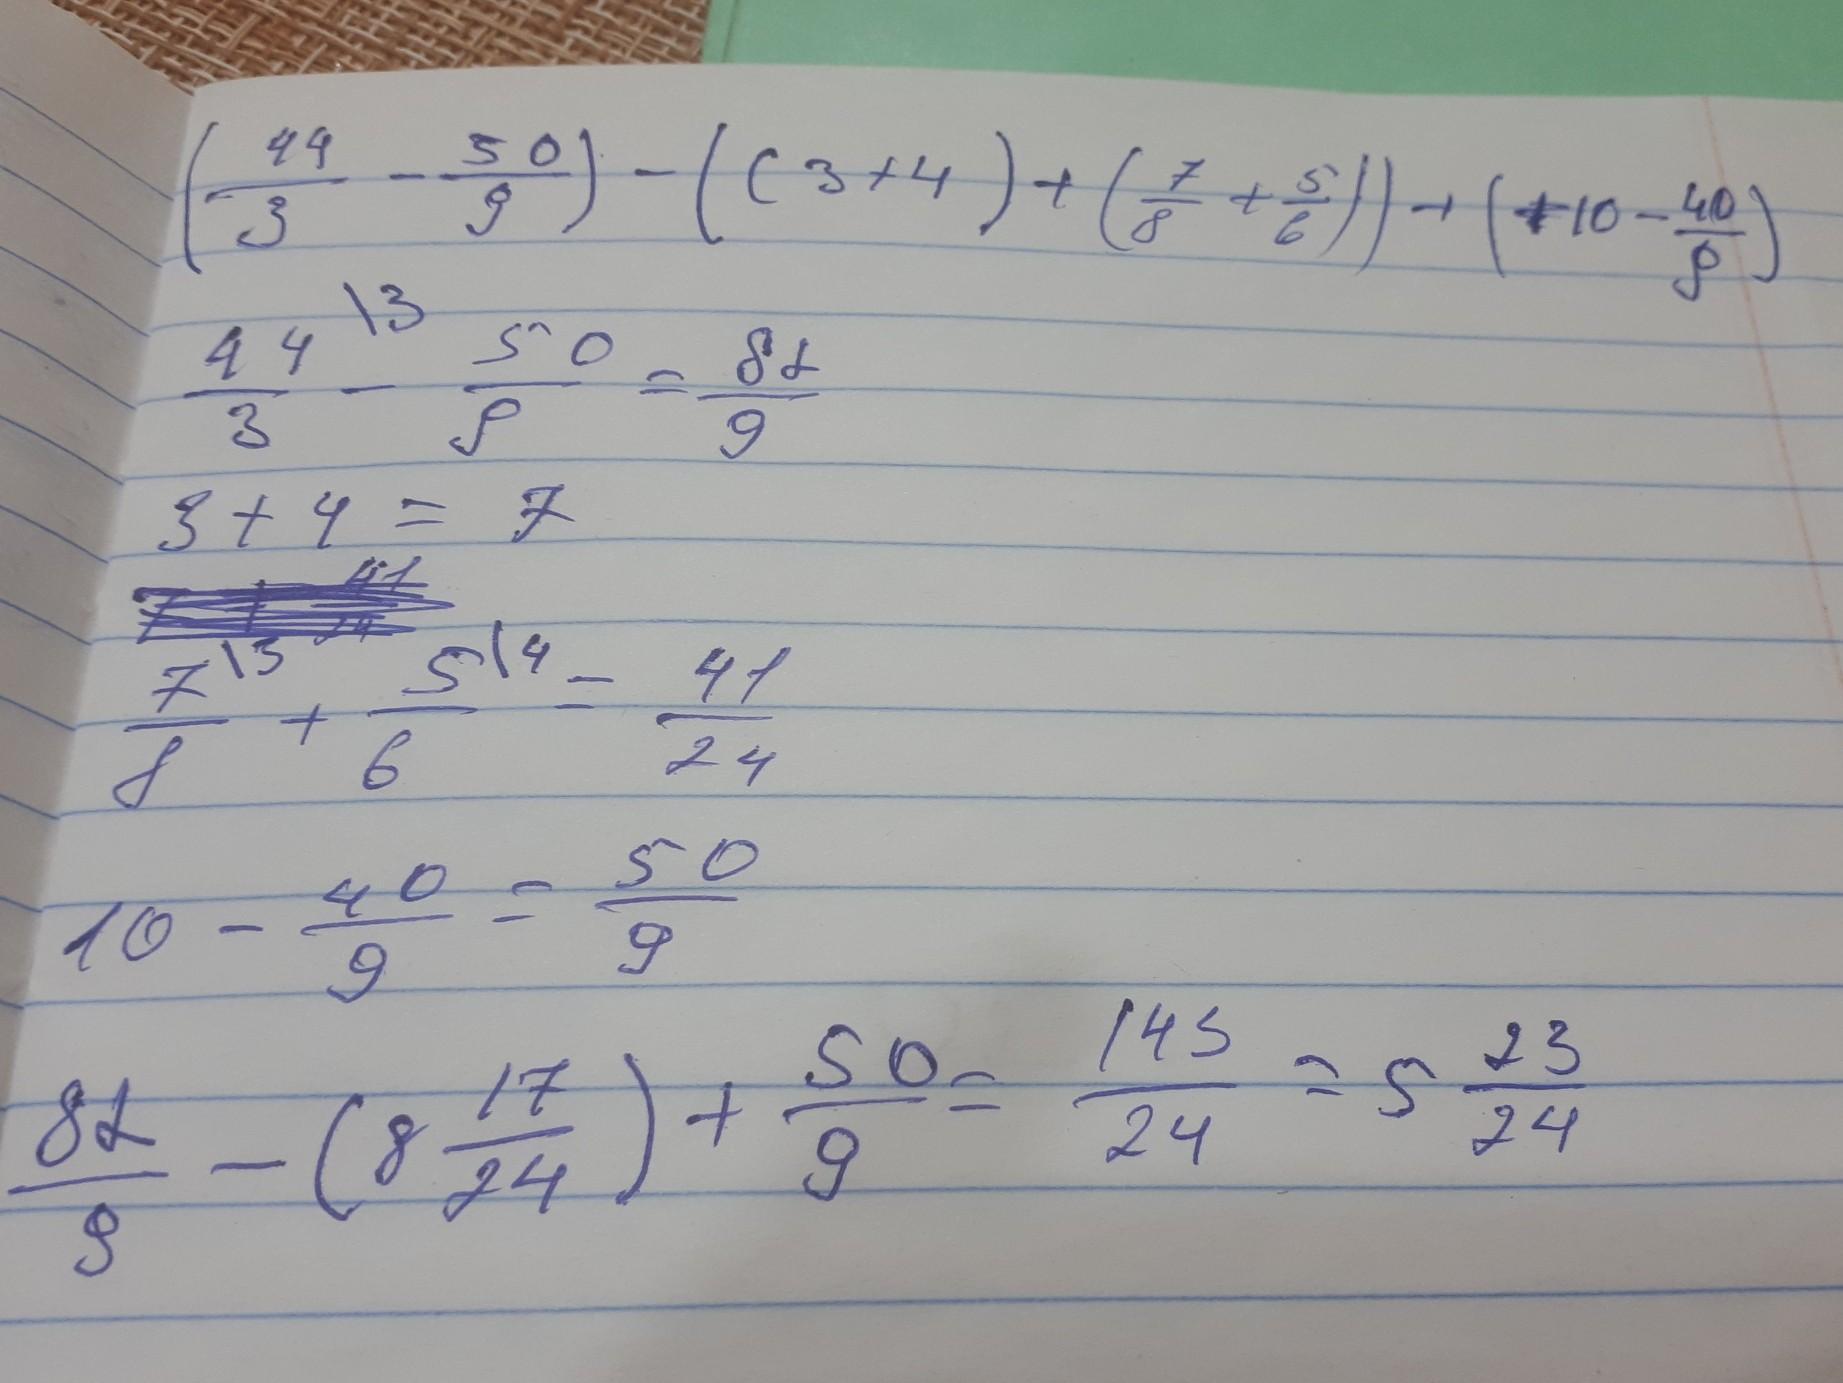 (44/3 - 50/9) - ((3+4) + (7/8 + 5/6)) + (+10 - 40/9)
44\3/3 - 50/9 = 82/9
3+4 = 7
7\3/8 + 5\4/6 = 41/24
10 - 40/9 = 50/9
82/9 - (8 17/24) + 50/9 = 143/24 = 5 23/24